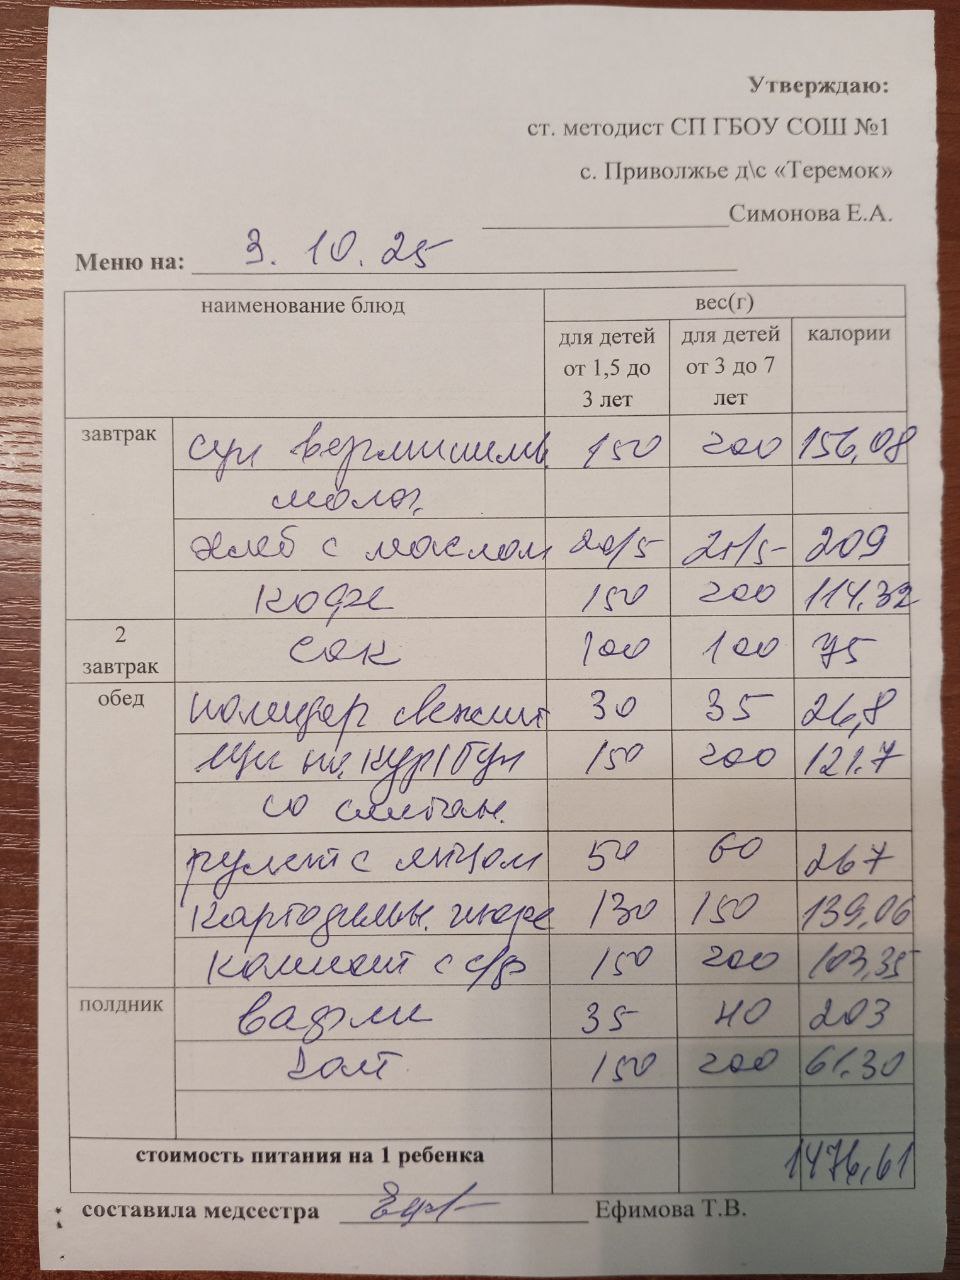 Утверждаю:
ст. методист СП ГБОУ СОШ №1
с. Приволжье д\с «Теремок»
Симонова Е.А.
Меню на: 3. 10. 25
наименование блюд вес(г)
для детей от 1,5 до 3 лет для детей от 3 до 7 лет калории
завтрак суп вермишелев 150 200 156,08
молоч.
хлеб с маслом 20/5 25/5 209
кофе 150 200 114.32
2 завтрак сок 100 100 75
обед помидор свежий 30 35 26,8
щи на кур/бул 150 200 121.7
со сметан.
рулет с яйцом 50 60 267
картофельн. пюре 130 150 139,06
компот с с/ф 150 200 103,35
полдник вафли 35 40 203
150 200 61.30
стоимость питания на 1 ребенка 1476,61
составила медсестра Ефимова Т.В.